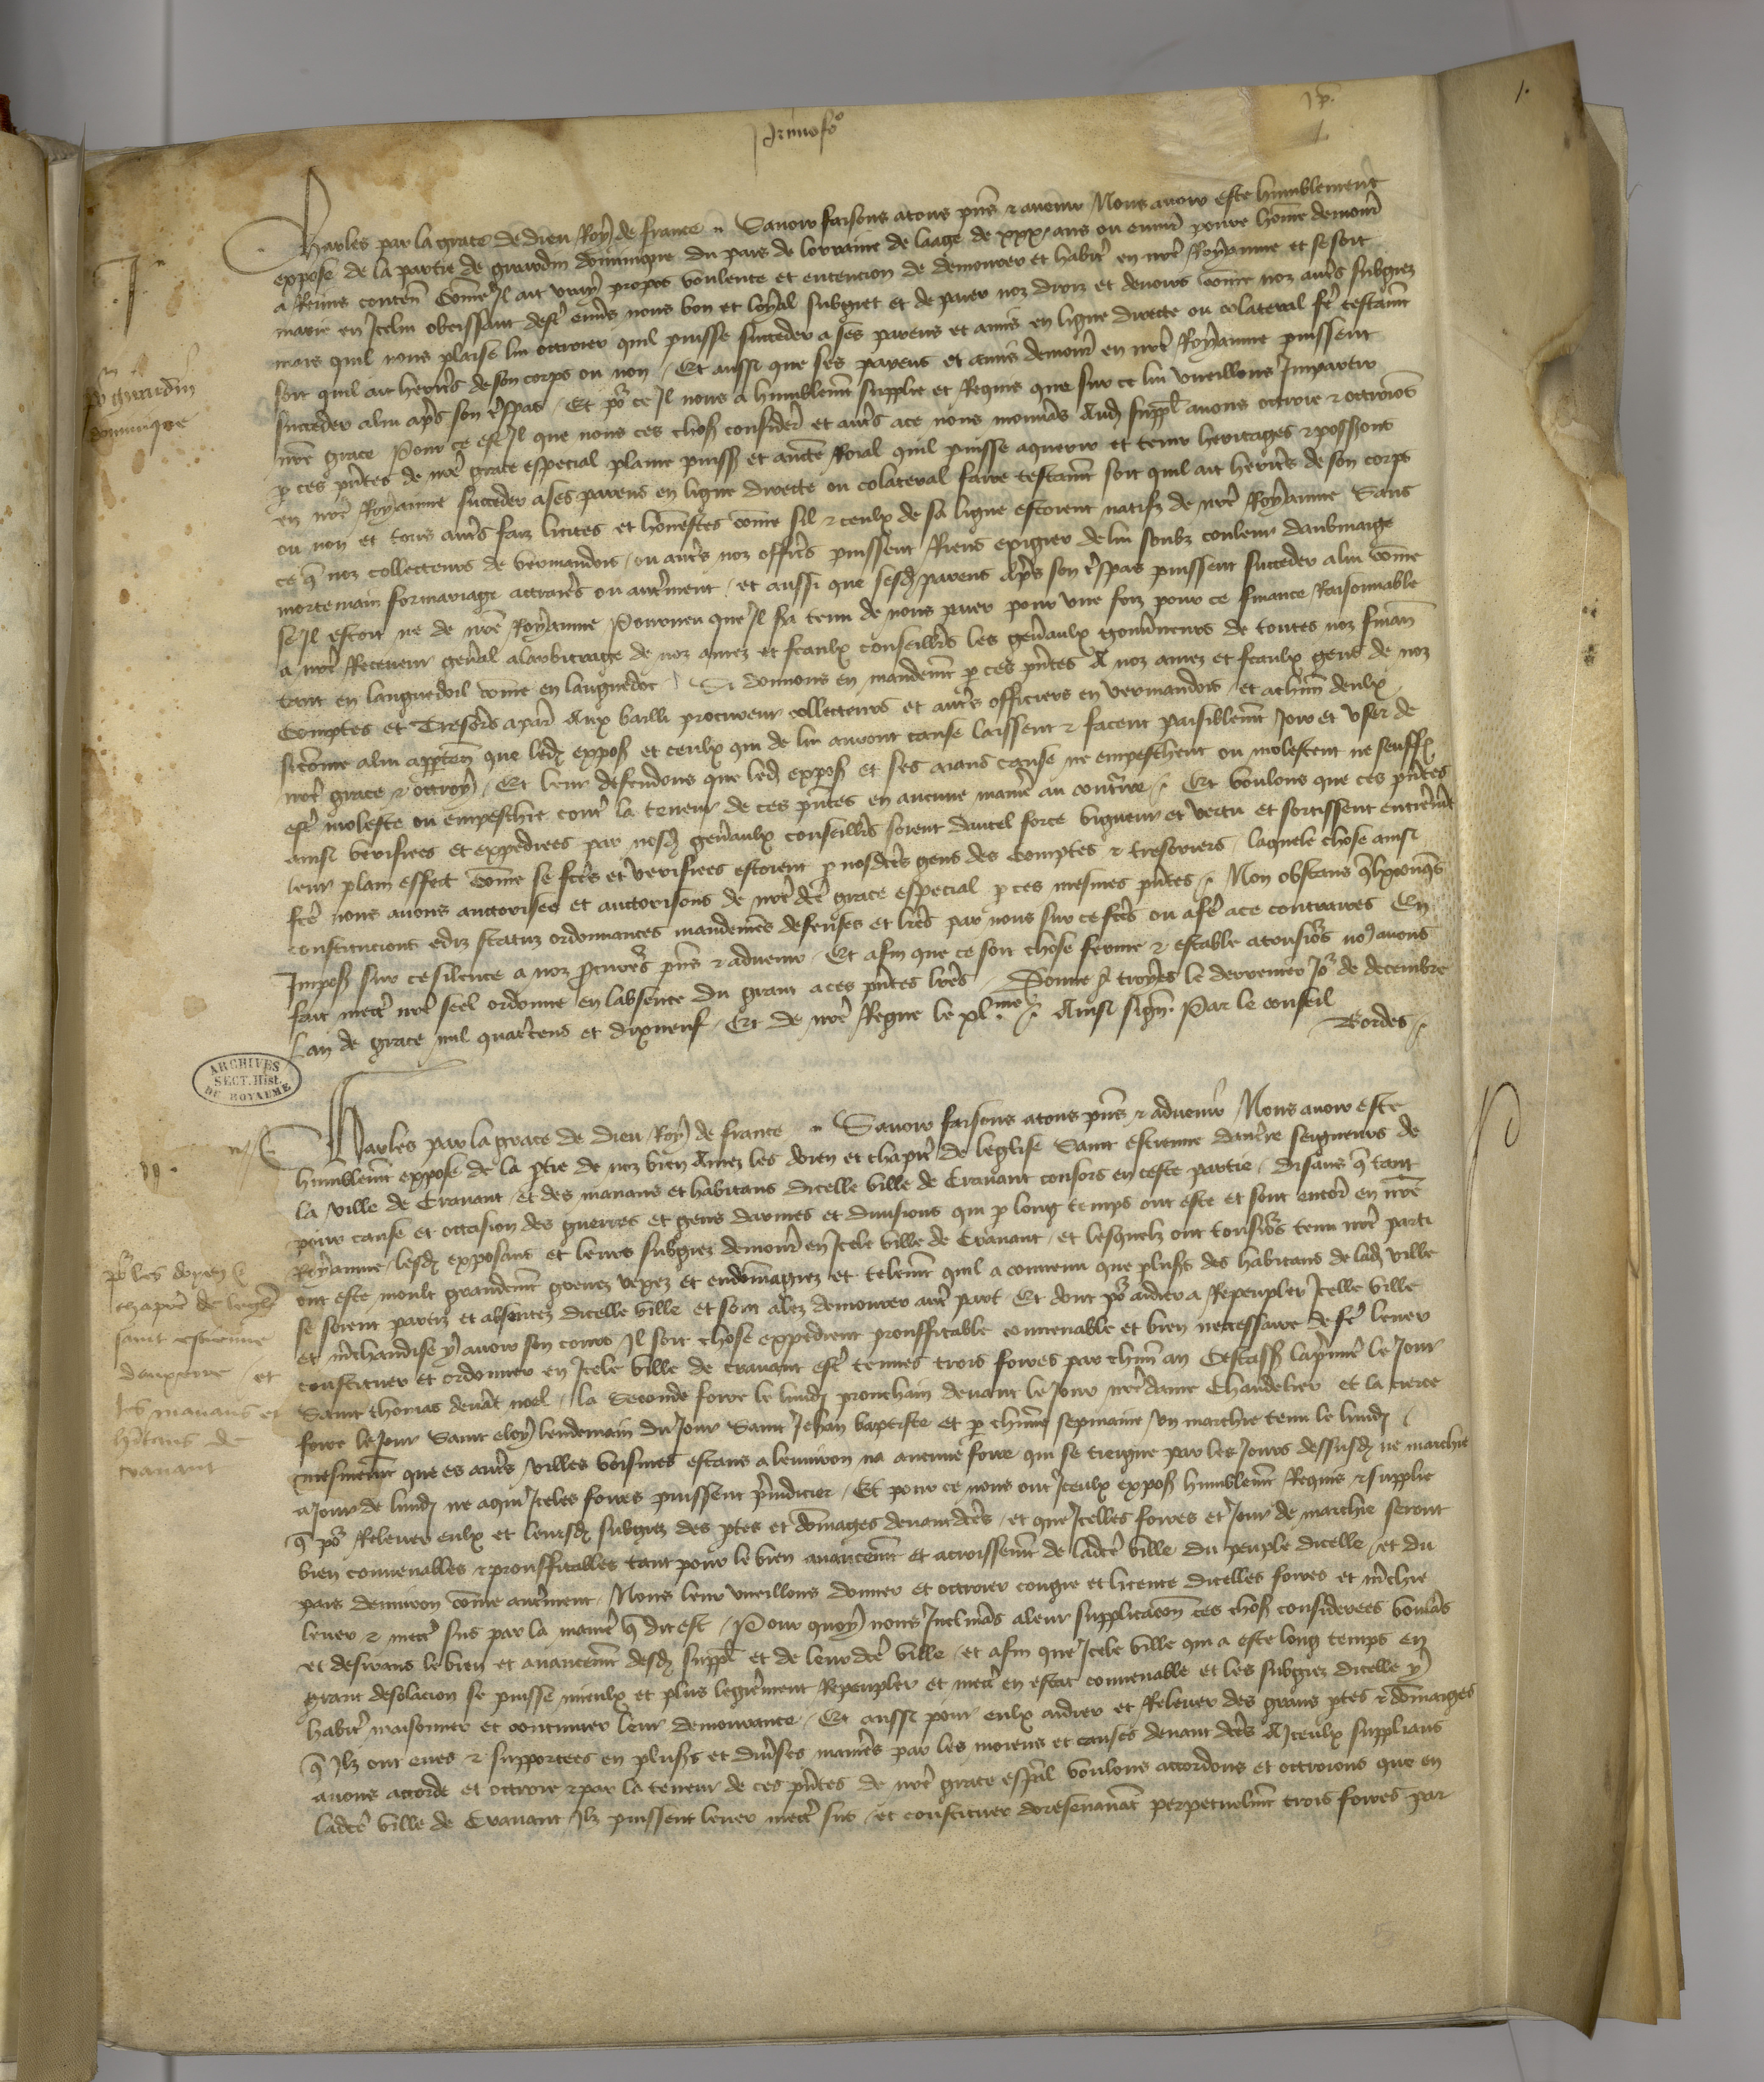 Primus fo
1.
Charles par la grace de dieu Roy de france Savoir faisons atous pns & avenir Nous avoir este humblement
expose de la partie de girardin dominique du pais de lorraine de laage de xxx ans ou environ povre home demour
a Reims conten Come Il ait vray propos voulente et entencion de demourer et habiter en nre Royaume et se soit
marie en Icelui obeissant destre envers nous bon et loyal subgiet et de paier noz droiz et devoirs come noz autres subgiez
mais quil nous plaise lui ottroier quil puisse succeder a ses parens et amis en ligne directe ou colateral fe testament
soit quil ait heritrs de son corps ou non / Et aussi que ses parens et amis demour en nre Royaume puissent
succeder alui apres son trespas / Et por ce Il nous a humblemt supplie et Requis que sur ce lui vueillons Impartir
nre grace Pour ce est Il que nous ces choses consider et autres ace nous mouvans Aud suppl avons ottroie & ottroions
p ces pntes de nre grace especial plaine puiss et aucte Roial quil puisse aquerir et tenir heritages & possessions
en nre Royaume succeder a ses parens en ligne directe ou colateral faire testamt soit quil ait heritrs de son corps
ou non et tous autres faiz licites et honnestes come sil & ceulx de sa ligne estoient natifz de nre Royaume Sans
ce q noz collecteurs de vermandois / ou autres noz officrs puissent Riens exigier de lui soubz couleur daubenaige
mortemain formariage attraits ou autrement / et aussi que sesd parens apres son trespas puissent succeder alui come
se Il estoit ne de nre Royaume Pourveu que Il sera tenu de nous paier pour une foiz pour ce finance Raisonnable
a nre Receveur general alarbitrage de noz amez et feaulx conseillrs les generaulx gouverneurs de toutes noz finan
tant en languedoil come en languedoc / Si donnons en mandemt p ces pntes A noz amez et feaulx gens de noz
Comptes et Tresorrs apar Aux bailli procureur collecteurs et autres officiers en vermandois / et achun deulx
sicome alui apparten que led expos et ceulx qui de lui auront cause laissent & facent paisiblemt Joir et user de
nre grace & ottroy / Et leur defendons que led expos et ses aians cause ne empeschent ou molestent ne seuffr
estre moleste ou empeschie contre la teneur de ces pntes en aucune maniere au contraire / Et voulons que ces pntes
ainsi verifiees et expediees par nosd generaulx conseillrs soient dautel force vigueur et vertu et sortissent entierement
leur plain effect come se fctes et verifiees estoient p nosdctes gens des comptes & tresoriers / laquele chose ainsi
fcte nous avons auctorisee et auctorisons de nre dcte grace especial p ces mesmes pntes / Non obstans qlxconqs
constitucions ediz statuz ordonnances mandemens defenses et lres par nous sur ce fctes ou afe ace contraires En
Imposs sur ce silence a noz procureurs pns & advenir / Et afin que ce soit chose ferme & estable atousiours nous avons
fait mectre nre seel ordonne en labsence du grant a ces pntes lres / Donne a troyes le derrenier Jor de decembre
Lan de grace mil quatrcens et dixneuf / Et de nre Regne le xl me / Ainsi sign Par le conseil
Bordes /
po girardin
dominique
ARCHIVES
SECT. Hist.
DU ROYAUME
Charles par la grace de dieu Roy de france Savoir faisons atous pns & advenir Nous avoir este
humblemt expose de la ptie de noz bien amez les doien et chapitre de leglise Saint estienne daucerre seigneurs de
la ville de Cravant / et des manans et habitans dicelle ville de Cravant consors en ceste partie / disans q tant
pour cause et occasion des guerres et gens darmes et divisions qui p long temps ont este et sont encor en nre
Royaume / lesd exposans et leurs subgiez demour en Icele ville de Cravant / et lesquelz ont tousiours tenu nre parti
ont este moult grandemt grevez vexez et endomagiez et telemt quil a convenu que plusrs des habitans de lad ville
se soient partiz et absentez dicelle ville et sont alez demourer autre part / Et dont por aidier a Repeupler Icelle ville
et mchandise y avoir son cours Il soit chose expedient prouffitable convenable et bien neccessaire de fe lever
constituer et ordonner en Icele ville de cravant estre tenues trois foires par chun an Cestass la pmiere le Jour
Saint thomas devant noel / la Seconde foire le lundi prouchain devant le Jour nre dame Chandelier / et la tierce
foire le Jour Saint eloy lendemain du Jour Saint Jehan baptiste et p chune sepmaine / un marchie tenu le lundi /
mesmemt que es autres villes voisines estans alenviron na aucune foire qui se tiengne par les Jours dessusd ne marchie
a Jour de lundi ne a qui Iceles foires puissent prejudicier / Et pour ce nous ont Iceulx expos humblemt Requis & supplie
q por Relever eulx et leursd subgiez des ptes et domages devantdcts / et que Icelles foires et Jour de marchie seront
bien convenables & prouffitables tant pour le bien avancemt et acroissemt de ladcte ville du peuple dicelle / et du
pais denviron come autrement / Nous leur vueillons donner et ottroier congie et licence dicelles foires et mchie
lever & mectre sus par la maniere q dit est / Pour quoy nous Inclinans aleur supplicacion ces choses considerees voulans
et desirans le bien et avancemt desd suppl et de leurdcte ville / et afin que Icele ville qui a este long temps en
grant desolacion se puisse mieulx et plus legierement Repeupler et mectre en estat convenable et les subgiez dicelle y
habiter maisonner et continuer leur demourance / Et aussi pour eulx aidier et Relever des grans ptes & domaiges
q Ilz ont eues & supportees en plusrs et diverses manieres par les moiens et causes devant dcts A Iceulx supplians
avons accorde et ottroie & par la teneur de ces pntes de nre grace espal voulons accordons et ottroions que en
ladcte ville de Cravant Ilz puissent lever mectre sus / et constituer doresenavant perpetuelmt trois foires par
po les doyen &
chapitre de leglise
saint estienne
dauxerre / et
les manans et
hitans de
cravant